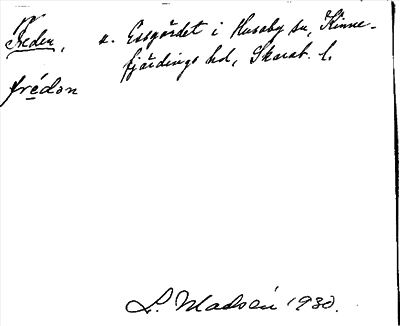 Freden, u. Essgärdet i Husaby sn, Kinne-
fjärdings hd, Skarab. l.
frédan
L. Madsén 1930.